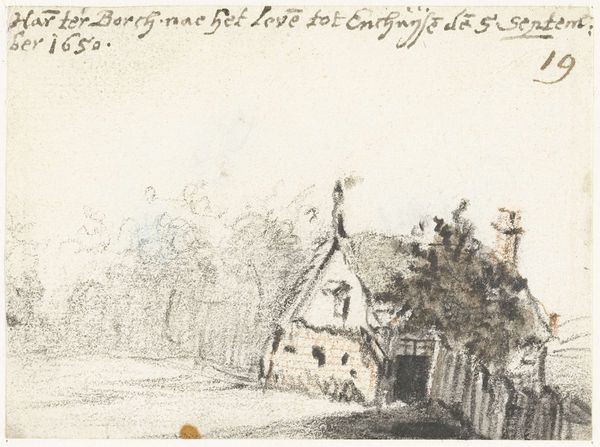 Harm̄ ter Borch. nae het Levē tot Enchuÿsē dē 5 Septem:
ber 1650.
19